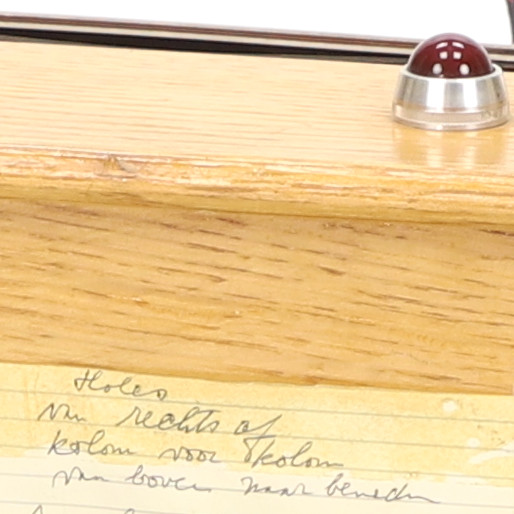 Holes
van rechts af
kolom voor kolom
van boven naar beneden